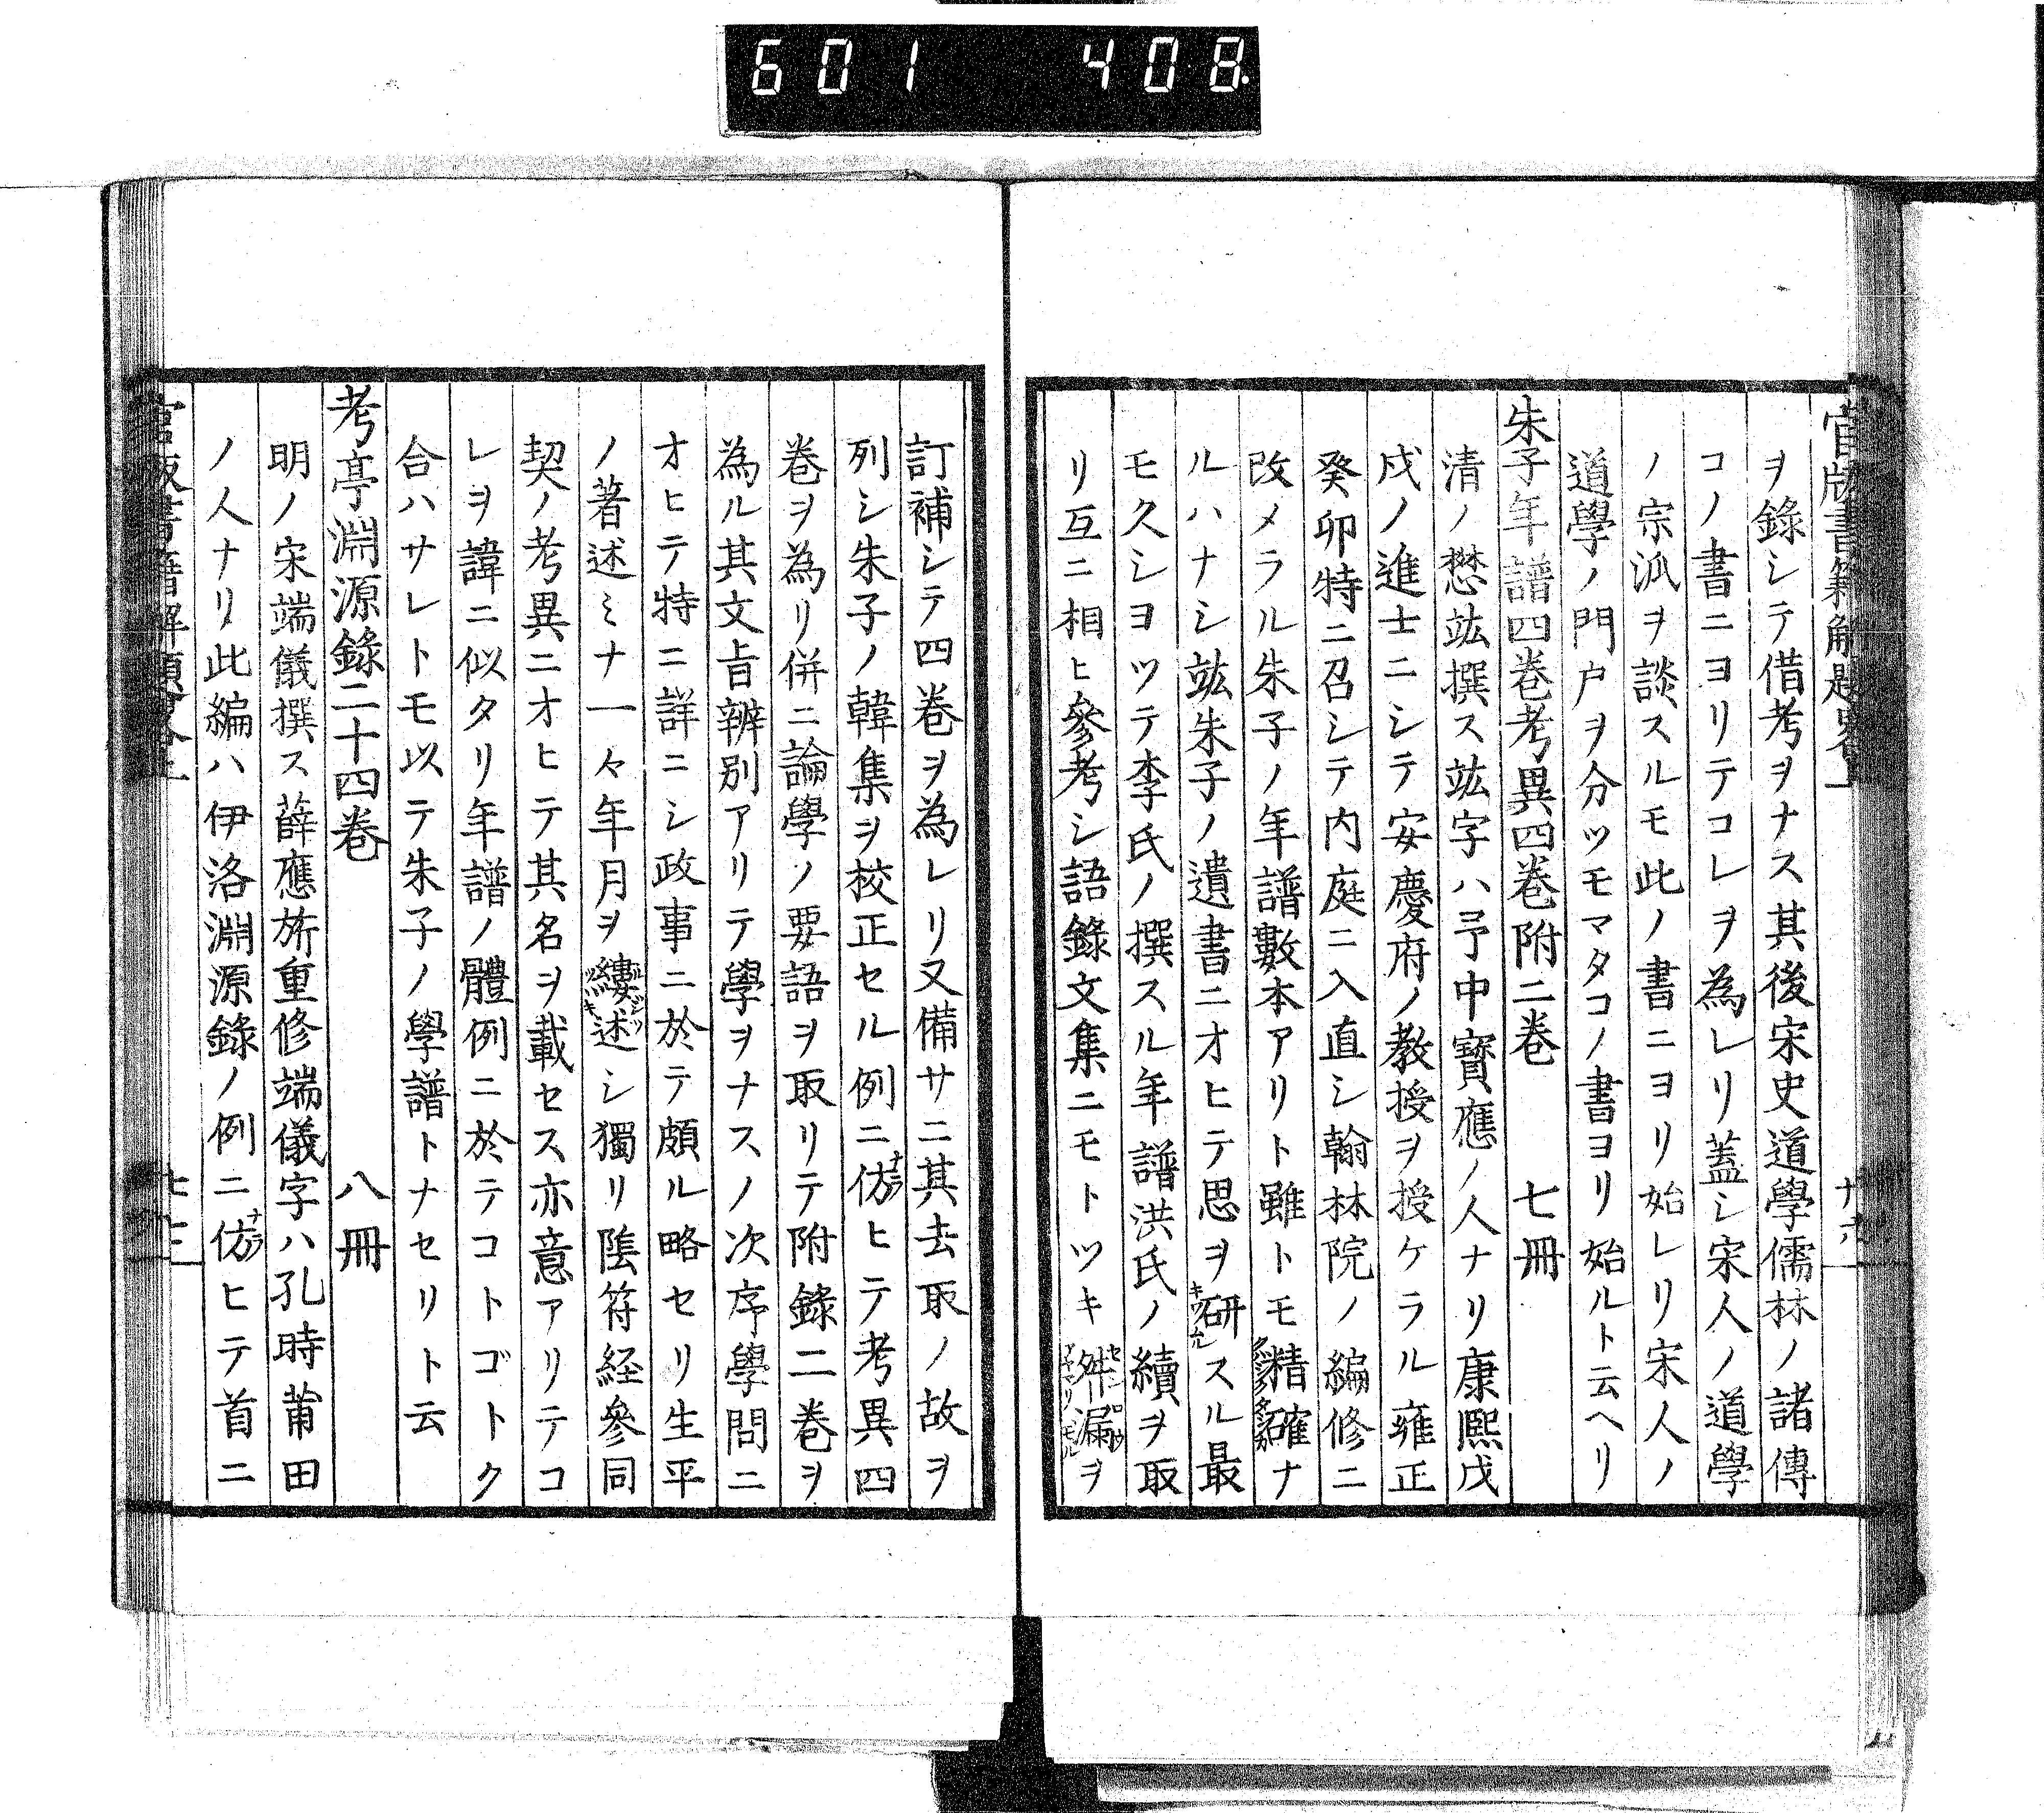 601 408
官版書籍解題畧上
ヲ錄シテ借考ヲナス其後宋史道學儒林ノ諸傳
コノ書ニヨリテコレヲ為レリ蓋シ宋人ノ道學
ノ宗派ヲ談スルモ此ノ書ニヨリ始レリ宋人ノ
道學ノ門戸ヲ分ツモマタコノ書ヨリ始ルト云ヘリ
朱子年譜四巻考異四巻附二巻 七冊
清ノ懋竑撰ス竑字ハ予中寳應ノ人ナリ康熙戊
戌ノ進士ニシテ安慶府ノ教授ヲ授ケラル雍正
癸卯特ニ召シテ内庭ニ入直シ翰林院ノ編修ニ
改メラル朱子ノ年譜數本アリト雖トモ精確ナ
ルハナシ竑朱子ノ遺書ニオヒテ思ヲ研スル最
モ久シヨツテ李氏ノ撰スル年譜洪氏ノ續ヲ取
リ互ニ相ヒ參考シ語錄文集ニモトツキ舛漏ヲ
訂補シテ四巻ヲ為レリ又備サニ其去取ノ故ヲ
列シ朱子ノ韓集ヲ校正セル例ニ倣ヒテ考異四
巻ヲ為リ併ニ論學ノ要語ヲ取リテ附錄二巻ヲ
為ル其文旨辨別アリテ學ヲナスノ次序學問ニ
オヒテ特ニ詳ニシ政事ニ於テ頗ル略セリ生平
ノ著述ミナ一々年月ヲ縷述シ獨リ陰符経參同
契ノ考異ニオヒテ其名ヲ載セス亦意アリテコ
レヲ諱ニ似タリ年譜ノ體例ニ於テコトゴトク
合ハサレトモ以テ朱子ノ學譜トナセリト云
考亭淵源錄二十四巻 八冊
明ノ宋端儀撰ス薛應旂重修端儀字ハ孔時莆田
ノ人ナリ此編ハ伊洛淵源錄ノ例ニ倣ヒテ首ニ
官版書籍解題畧上